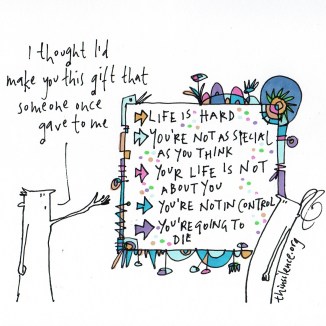 I thought I'd
make you this gift that
someone once
gave to me
LIFE IS HARD
YOU'RE NOT AS SPECIAL
AS YOU THINK
YOUR LIFE IS NOT
ABOUT YOU
YOU'RE NOT IN CONTROL
YOU'RE GOING TO
DIE
thinsilence.org